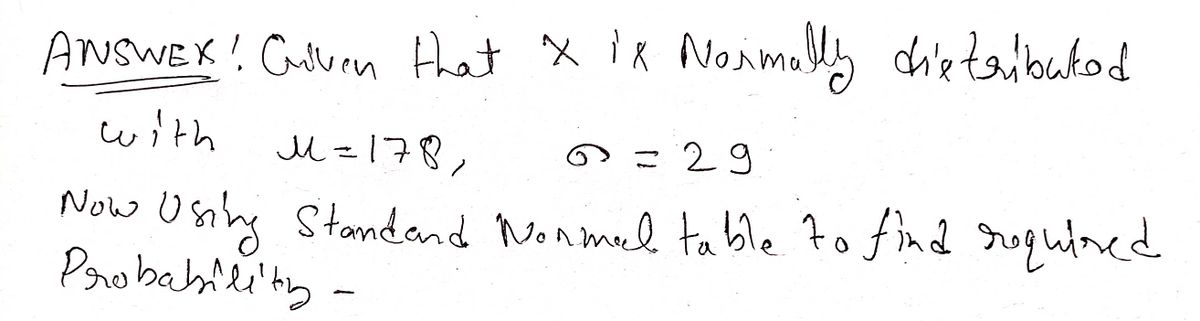 ANSWER! Given that X is Normally distributed
with μ = 178, σ = 29
Now Using Standard Normal table to find required
Probability -